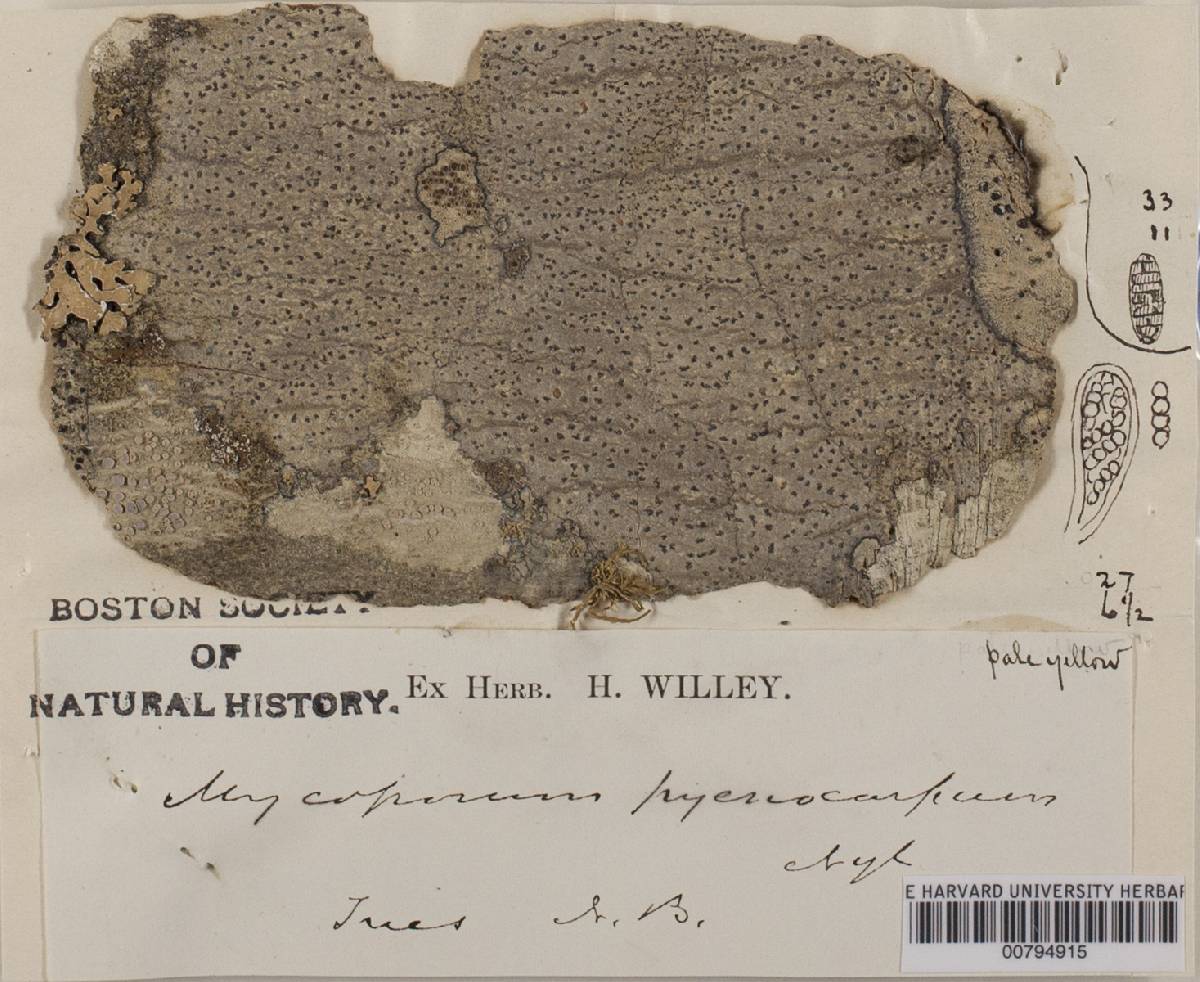 33
11
27
6 1/2
pale yellow
BOSTON SOCIETY
OF
NATURAL HISTORY.
Ex Herb. H. WILLEY.
Mycoporum pycnocarpum
Nyl
Trees N. B.
E HARVARD UNIVERSITY HERBAR
00794915